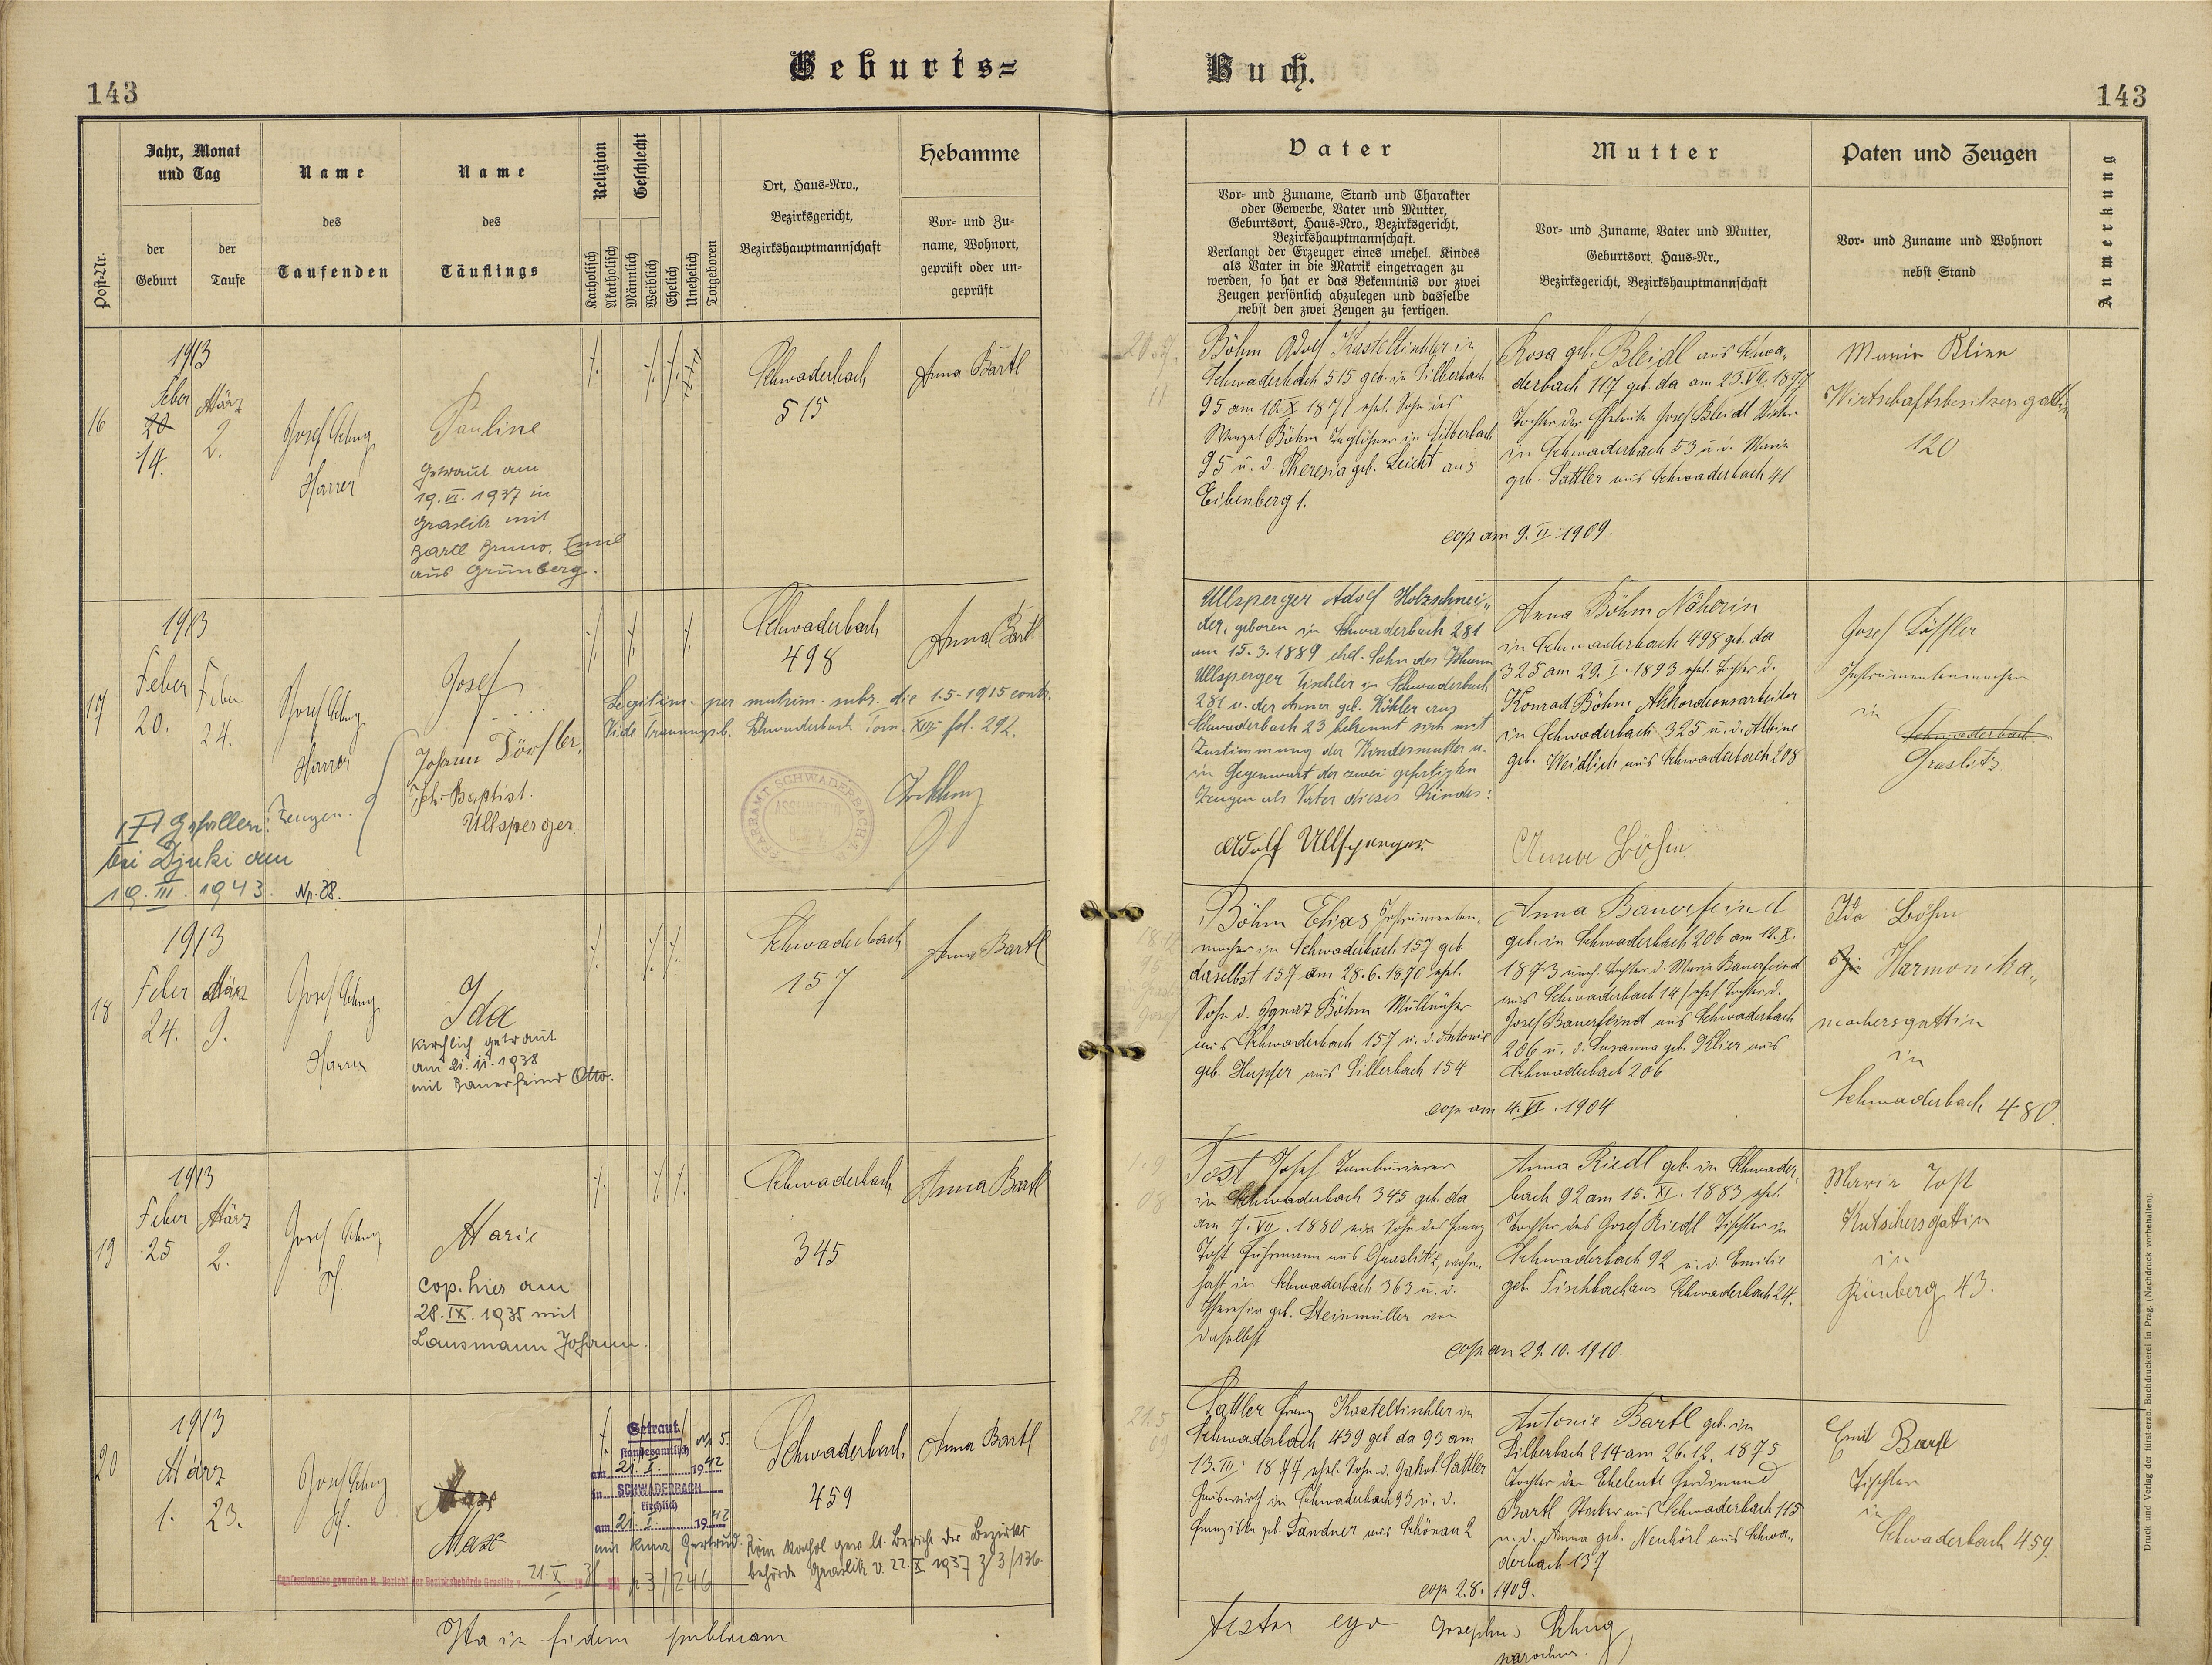 Geburts-Buch.
143
143
Post-Nr.
Jahr, Monat
und Tag
der
Geburt
der
Taufe
Name
des
Taufenden
Name
des
Täuflings
Religion
Katholisch
Akatholisch
Geschlecht
Männlich
Weiblich
Ehelich
Unehelich
Totgeboren
Ort, Haus-Nro.,
Bezirksgericht,
Bezirkshauptmannschaft
Hebamme
Vor- und Zu-
name, Wohnort,
geprüft oder un-
geprüft
Vater
Vor- und Zuname, Stand und Charakter
oder Gewerbe, Vater und Mutter,
Geburtsort, Haus-Nro., Bezirksgericht,
Bezirkshauptmannschaft.
Verlangt der Erzeuger eines unehel. Kindes
als Vater in die Matrik eingetragen zu
werden, so hat er das Bekenntnis vor zwei
Zeugen persönlich abzulegen und dasselbe
nebst den zwei Zeugen zu fertigen.
Mutter
Vor- und Zuname, Vater und Mutter,
Geburtsort, Haus-Nr.,
Bezirksgericht, Bezirkshauptmannschaft
Paten und Zeugen
Vor- und Zuname und Wohnort
nebst Stand
Anmerkung
16
1913
Feber
20
14.
März
2.
Josef
Pfarrer
Pauline
Getraut am
19. VI. 1937 in
Graslitz mit
Bartl Bruno, Emil
aus Grünberg.
Schwaderbach
515
Anna Bartl
Böhm Adolf Kasteltischler in
Schwaderbach 515 geb. in Silberbach
95 am 10. X 1871 ehel. Sohn des
Wenzel Böhm Taglöhner in Silberbach
95 u. d. Theresia geb. Leicht aus
Eibenberg 1.
Rosa geb. Bleidl aus Schwa-
derbach 117 geb. da am 23. VII. 1877
Tochter der Eheleute Josef Bleidl
in Schwaderbach 53 u. d. Maria
geb. Sattler aus Schwaderbach 41
cop am 9. II 1909.
Marie Klier
Wirtschaftsbesitzersgattin
120
17
1913
Feber
20.
Feber
24.
Josef
Pfarrer
Josef
Legitim. per matrim. subs. die 1.5-1915 contr.
Vide Trauungsb. Schwaderbach Tom. XIII fol. 292.
Zeugen.
Johann Dörfler,
Joh. Baptist.
Ullsperger
Gefallen:
bei Djuki am
19. III. 1943. Nr. 38.
PFARRAMT SCHWADERBACH
Schwaderbach
498
Anna Bartl
Ullsperger Adolf Holzschnei-
der, geboren in Schwaderbach 281
am 15. 3. 1889 ehel. Sohn des Johann
Ullsperger Tischler in Schwaderbach
281 u. der Anna geb. Köhler aus
Schwaderbach 23 bekennt sich mit
Zustimmung der Kindesmutter u.
in Gegenwart der zwei gefertigten
Zeugen als Vater dieses Kindes:
Adolf Ullsperger
Anna Böhm Näherin
in Schwaderbach 498 geb. da
325 am 29. I. 1893 ehel. Tochter d.
Konrad Böhm Akkordionsarbeiter
in Schwaderbach 325 u. d. Albine
geb. Weidlich aus Schwaderbach 208
Anna Böhm
Josef
Instrumentenmacher
in
Schwaderbach
Graslitz
18
1913
Feber
24.
März
9.
Josef
Pfarrer
Ida
Kirchlich getraut
am 21. II. 1938
mit Bauerfeind Otto.
Schwaderbach
157
Anna Bartl
Böhm Elias Instrumenten-
macher in Schwaderbach 157 geb
daselbst 157 am 28. 6. 1870 ehel.
Sohn d. Ignaz Böhm
aus Schwaderbach 157 u. d. Antonie
geb. Hupfer aus Silberbach 154
Anna Bauerfeind
geb. in Schwaderbach 206 am 12. X.
1873 uneh. Tochter d. Maria Bauerfeind
aus Schwaderbach 14 / ehel. Tochter d.
Josef Bauerfeind aus Schwaderbach
206 u. d. Susanna geb. Klier aus
Schwaderbach 206
cop am 4. VI. 1904
Ida Böhm
Harmonika-
machersgattin
in
Schwaderbach 480.
19
1913
Feber
25
März
2.
Josef
Pf.
Marie
cop. hier am
28. IX. 1935 mit
Lausmann Johann.
Schwaderbach
345
Anna Bartl
Tost Josef Tambourierer
in Schwaderbach 345 geb. da
am 7. VII. 1880 Sohn des Franz
Tost Fuhrmann aus Graslitz, wohn-
haft in Schwaderbach 363 u. d.
Theresia geb. Steinmüller von
daselbst
Anna Riedl geb. in Schwader-
bach 92 am 15. XI. 1883 ehel.
Tochter des Josef Riedl Tischler in
Schwaderbach 92 u. d. Emilie
geb. Fischbach aus Schwaderbach 24.
cop am 29. 10. 1910.
Marie Tost
Kutschersgattin
in
Grünberg 43.
20
1913
März
1.
23.
Josef
Pf.
Max
Getraut
standesamtlich Nr 5.
am 21. X. 1942
in SCHWADERBACH
kirchlich
am 21. X. 1942
mit Kunz Gertrud.
Konfessionslos geworden lt. Bericht der Bezirksbehörde Graslitz v. 21. X
Röm kathol gew. lt. Bericht der Bezirks-
behörde Graslitz v. 22. X 1937 Z 3/136.
Schwaderbach
459
Anna Bartl
Sattler Franz Kasteltischler in
Schwaderbach 459 geb da 93 am
13. III. 1877 ehel. Sohn d. Jakob Sattler
Hauswirt in Schwaderbach 93 u. d.
Franziska geb. Sandner aus Schönau 2
Antonie Bartl geb. in
Silberbach 214 am 26. 12. 1875
Tochter der Eheleute Ferdinand
Bartl Sticker aus Schwaderbach 115
u. d. Anna geb. Neuhörl aus Schwa-
derbach 137
cop 2. 8. 1909.
Emil Bartl
Tischler
in
Schwaderbach 459.
Ita in fidem publicam
testor ego Josephus
parochus.
Druck und Verlag der fürst-erzb. Buchdruckerei in Prag. (Nachdruck vorbehalten).